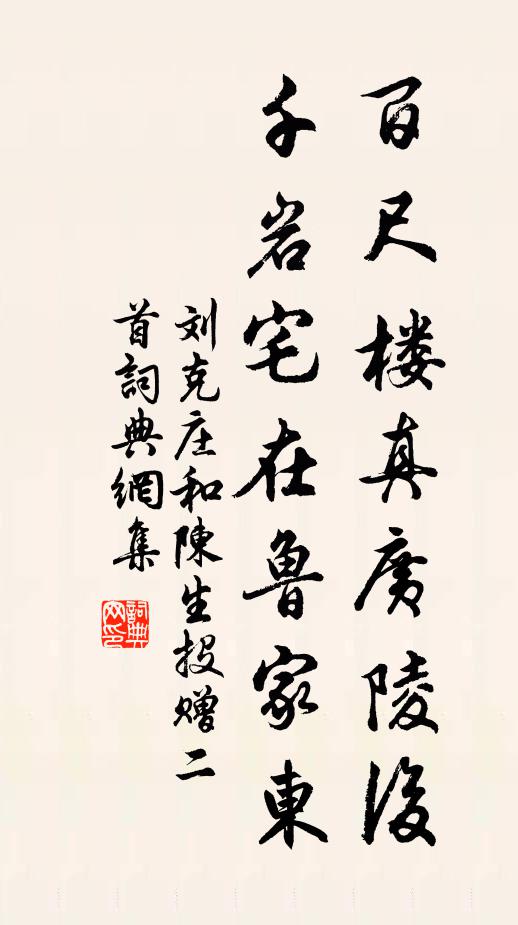 百尺楼真廣陵後
千岩宅在魯家東
刘克庄和陳生投赠二
首詞典網集
詞典網印